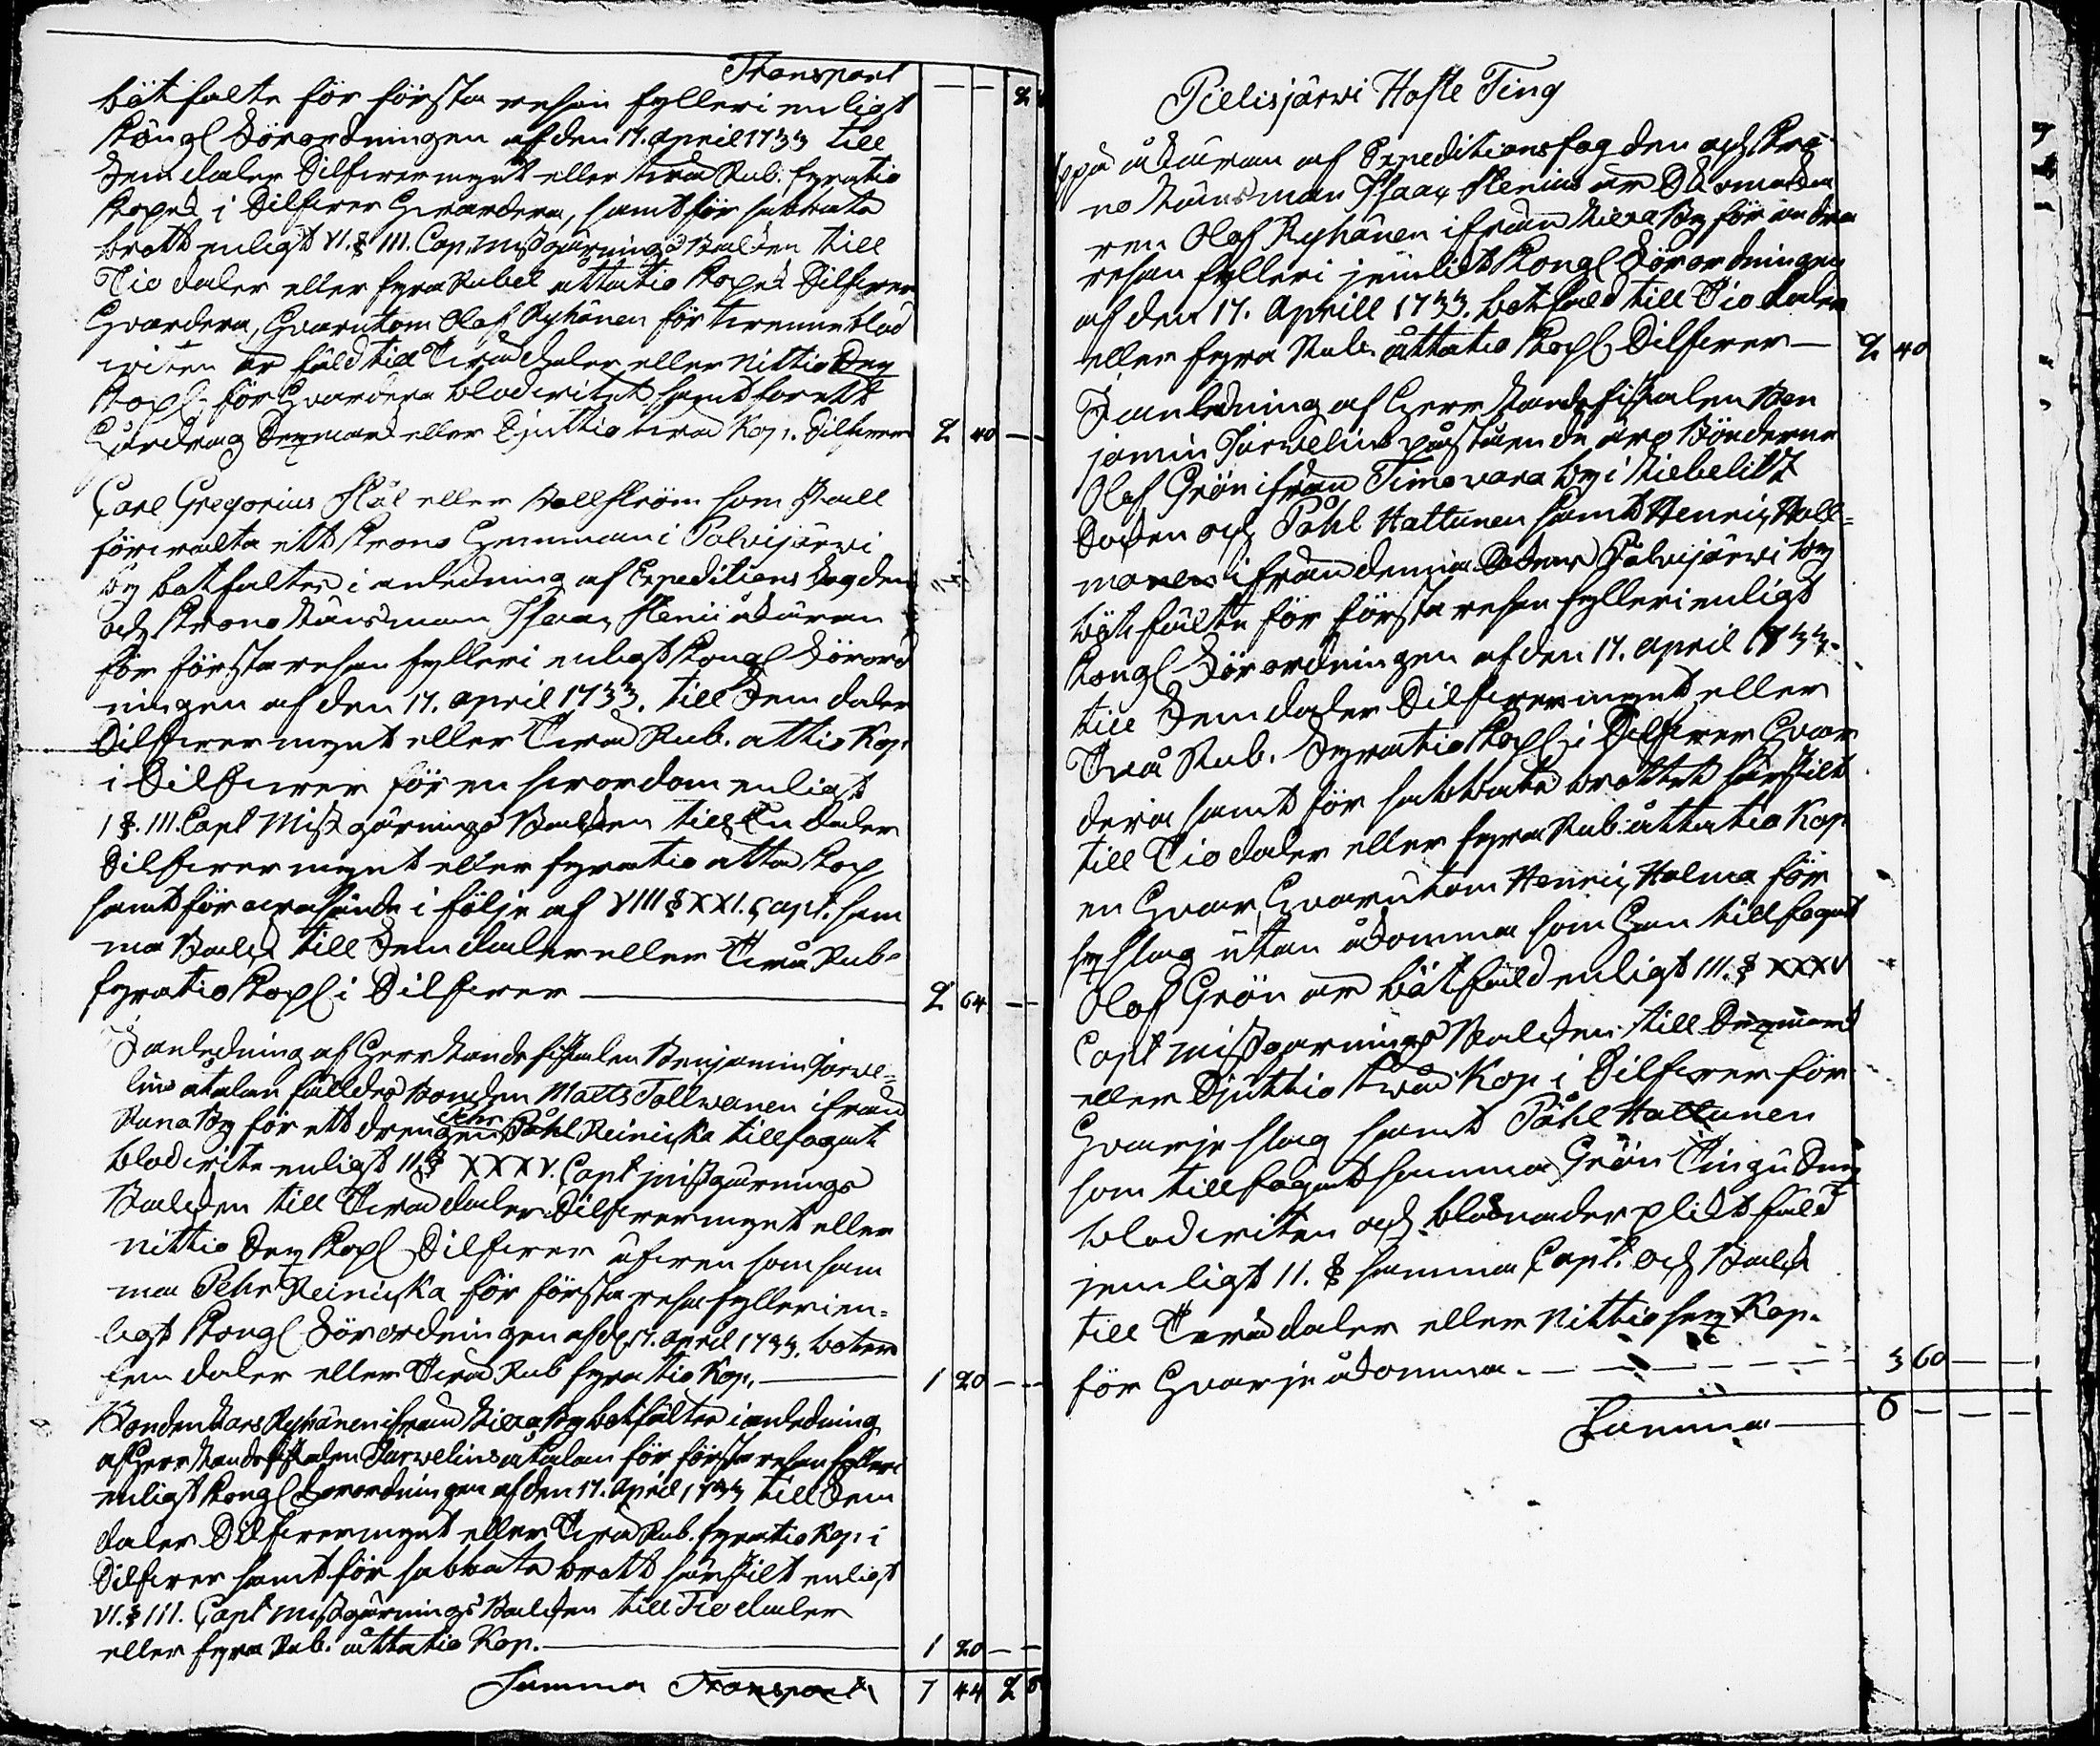 Transport
bötfälte för första resan fylleri enligt
Kongl Förordningen af den 17. April 1733 till
Fem daler Silfvermynt eller två Rub. fyratio
Kopek i Silfver hvardera, samt för sabbats
brott enligt VI. § III. Cap. Missgärnings Balken till
Tio daler eller fyra Rubel åttatio Kopek Silfver
hvardera, hvarutom Olof Ryhänen för trenne blod
viten är fäld till Två daler eller Nittio Sex
Kop för hvardera blodvitet samt för ett
Hårdrag Sexmark eller Sjuttio två Kop. Silfver 2 40 — —
Carl Gregorius Stål eller Wallström som skall
förvalta ett Krono Hemman i Polvijärvi
by bötfältes i anledning af Expeditions Fogden
och Krono Länsman Isaac Stenii åtal
för första resan fylleri enligt Kongl Förord
ningen af den 17. April 1733. till Fem daler
Silfvermynt eller Två Rub. åttio Kop.
i Silfver för en svordom enligt
1 §. III. Capt Missgärnings Balken till En daler
Silfvermynt eller fyratio åtta Kop
samt för oväsende i följe af VIII § XXI. Capt. sam
ma Balk till Fem daler eller Två Rub.
fyratio Kop i Silfver — 2 64 — —
I anledning af Herr Landsfiskalen Benjamin Järve=
lins åtalan fälldes Bonden Matts Tollwanen ifrån
Runa By för ett drengen Pehr Påhl Reinicka tillfogat
blodvite enligt II § XXXV. Capt Missgärnings
Balken till Två daler Silfvermynt eller
nittio Sex Kop Silfver äfven som sam
ma Pehr Reinicka för första resa fylleri en=
ligt Kongl Förordningen af d. 17. April 1733. böter
fem daler eller Två Rub fyratio Kop. — 1 20 — —
Bonden Lars Ryhänen ifrån Viexa By bötfältes i anledning
af Herr Landsfiskalen Järvelins åtalan för första resan fylleri
enligt Kongl Förordningen af den 17. April 1733 till Fem
daler Silfvermynt eller Två Rub. fyratio Kop. i
Silfver samt för sabbats brott särskilt enligt
VI. § III. Capt Missgärnings Balken till Tio daler
eller fyra Rub. åttatio Kop. — 1 20 — —
Summa Transport 7 44 2
Pielisjärvi Höste Ting
Uppå åtal af Expeditionsfogden och Kro
no Länsman Isaac Stenius är
ren Olof Ryhänen ifrån Viexa By för andra
resan fylleri jemlikt Kongl Förordningen
af den 17. Aprill 1733. bötfäld till Tio daler
eller fyra Rub. åttatio Kop Silfver — 2 40
I anledning af Herr Landsfiskalen Ben
jamin Järvelins påstående äro Bönderne
Olof Grön ifrån Timovara by i Liebelitz
Socken och Påhl Hattunen samt Henric Hall=
monen ifrån denna Sockens Polvijärvi by
bötfälte för första resan fylleri enligt
Kongl Förordningen af den 17. April 1733.
till Fem daler Silfvermynt eller
Två Rub. Fyratio Kop i Silfver hvar
dera samt för sabbats brottet särskilt
till Tio daler eller fyra Rub. åttatio Kop
en hvar, hvarutom Henric Holma för
sex slag utan åkomma som han tillfogat
Olof Grön är bötfäld enligt III. § XXXV
Capt Missgärnings Balken till Sexmark
eller Sjuttio två Kop i Silfver för
hvarje slag samt Påhl Hattunen
som tillfogat samma Grön Tingu
blodviten och blånader pliktfäld
jemligt II. § samma Capt. och Balk
till Två daler eller Nittio sex Kop.
för hvarje åkomma. — 3 60 — —
Summa — 6 — — —